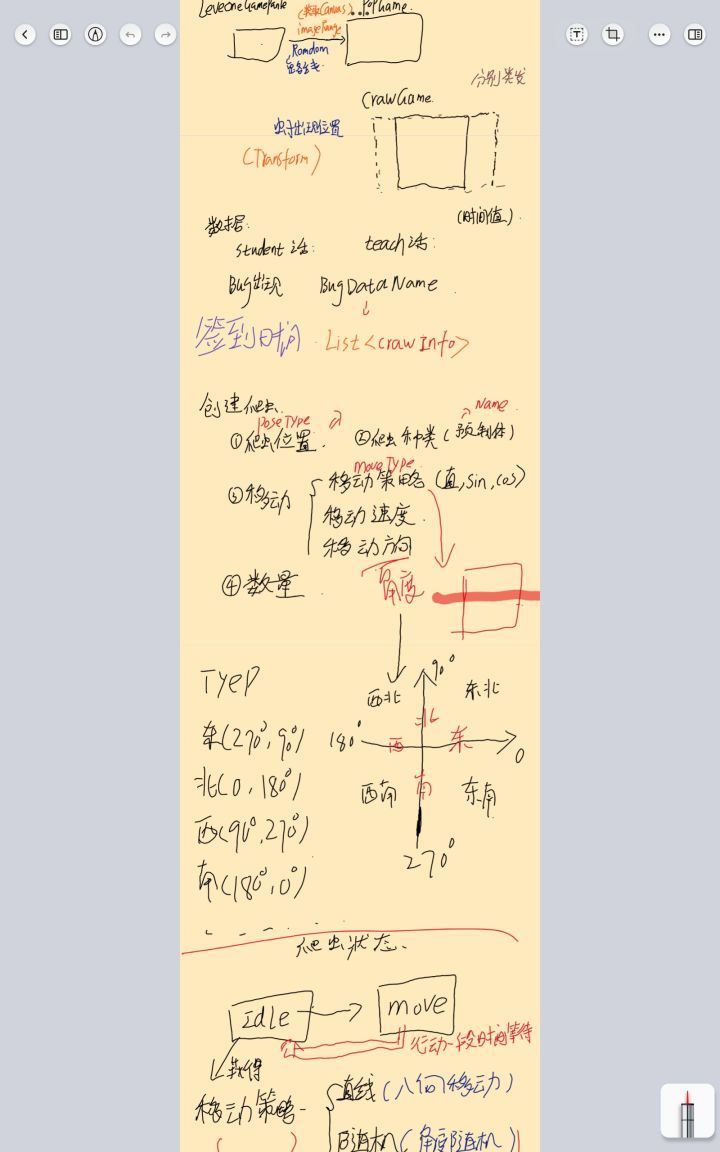 LeveOneGamePanle
(获取Canvas) PopGame
imagePange
Romdom
分别类发
CrawGame
虫子出现位置
(Transform)
数据: (时间值)
student 话: teach 话:
Bug出现 BugDataName
签到时间 List<crawInfo>
创建爬虫
poseType Name
①爬虫位置 ②爬虫种类(预制体)
moveType
③移动 移动策略(直,sin,cos)
移动速度
移动方向
④数量 角度
TYeP 90°
西北 东北
北
东(270°,90°) 180° 西 东 0
北(0,180°) 西南 南 东南
西(90°,270°)
南(180°,0°) 270°
爬虫状态.
Idle move
行动一段时间等待
获得
移动策略- 直线(八个移动)
随机(角度随机)